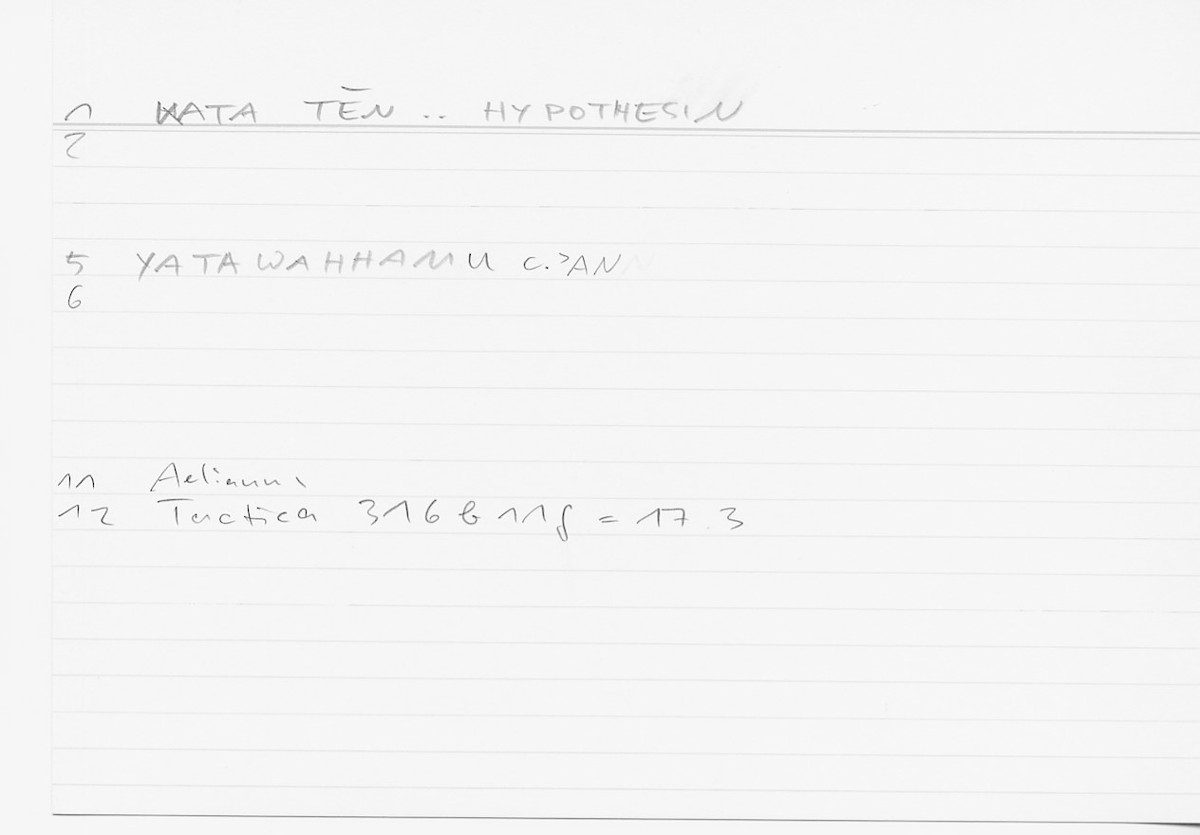 1 KATA TĒN .. HYPOTHESIN
2
5 YATAWAHHAMU C.ʾAN
6
11 Aelianus
12 Tactica 316 b 11f = 17.3